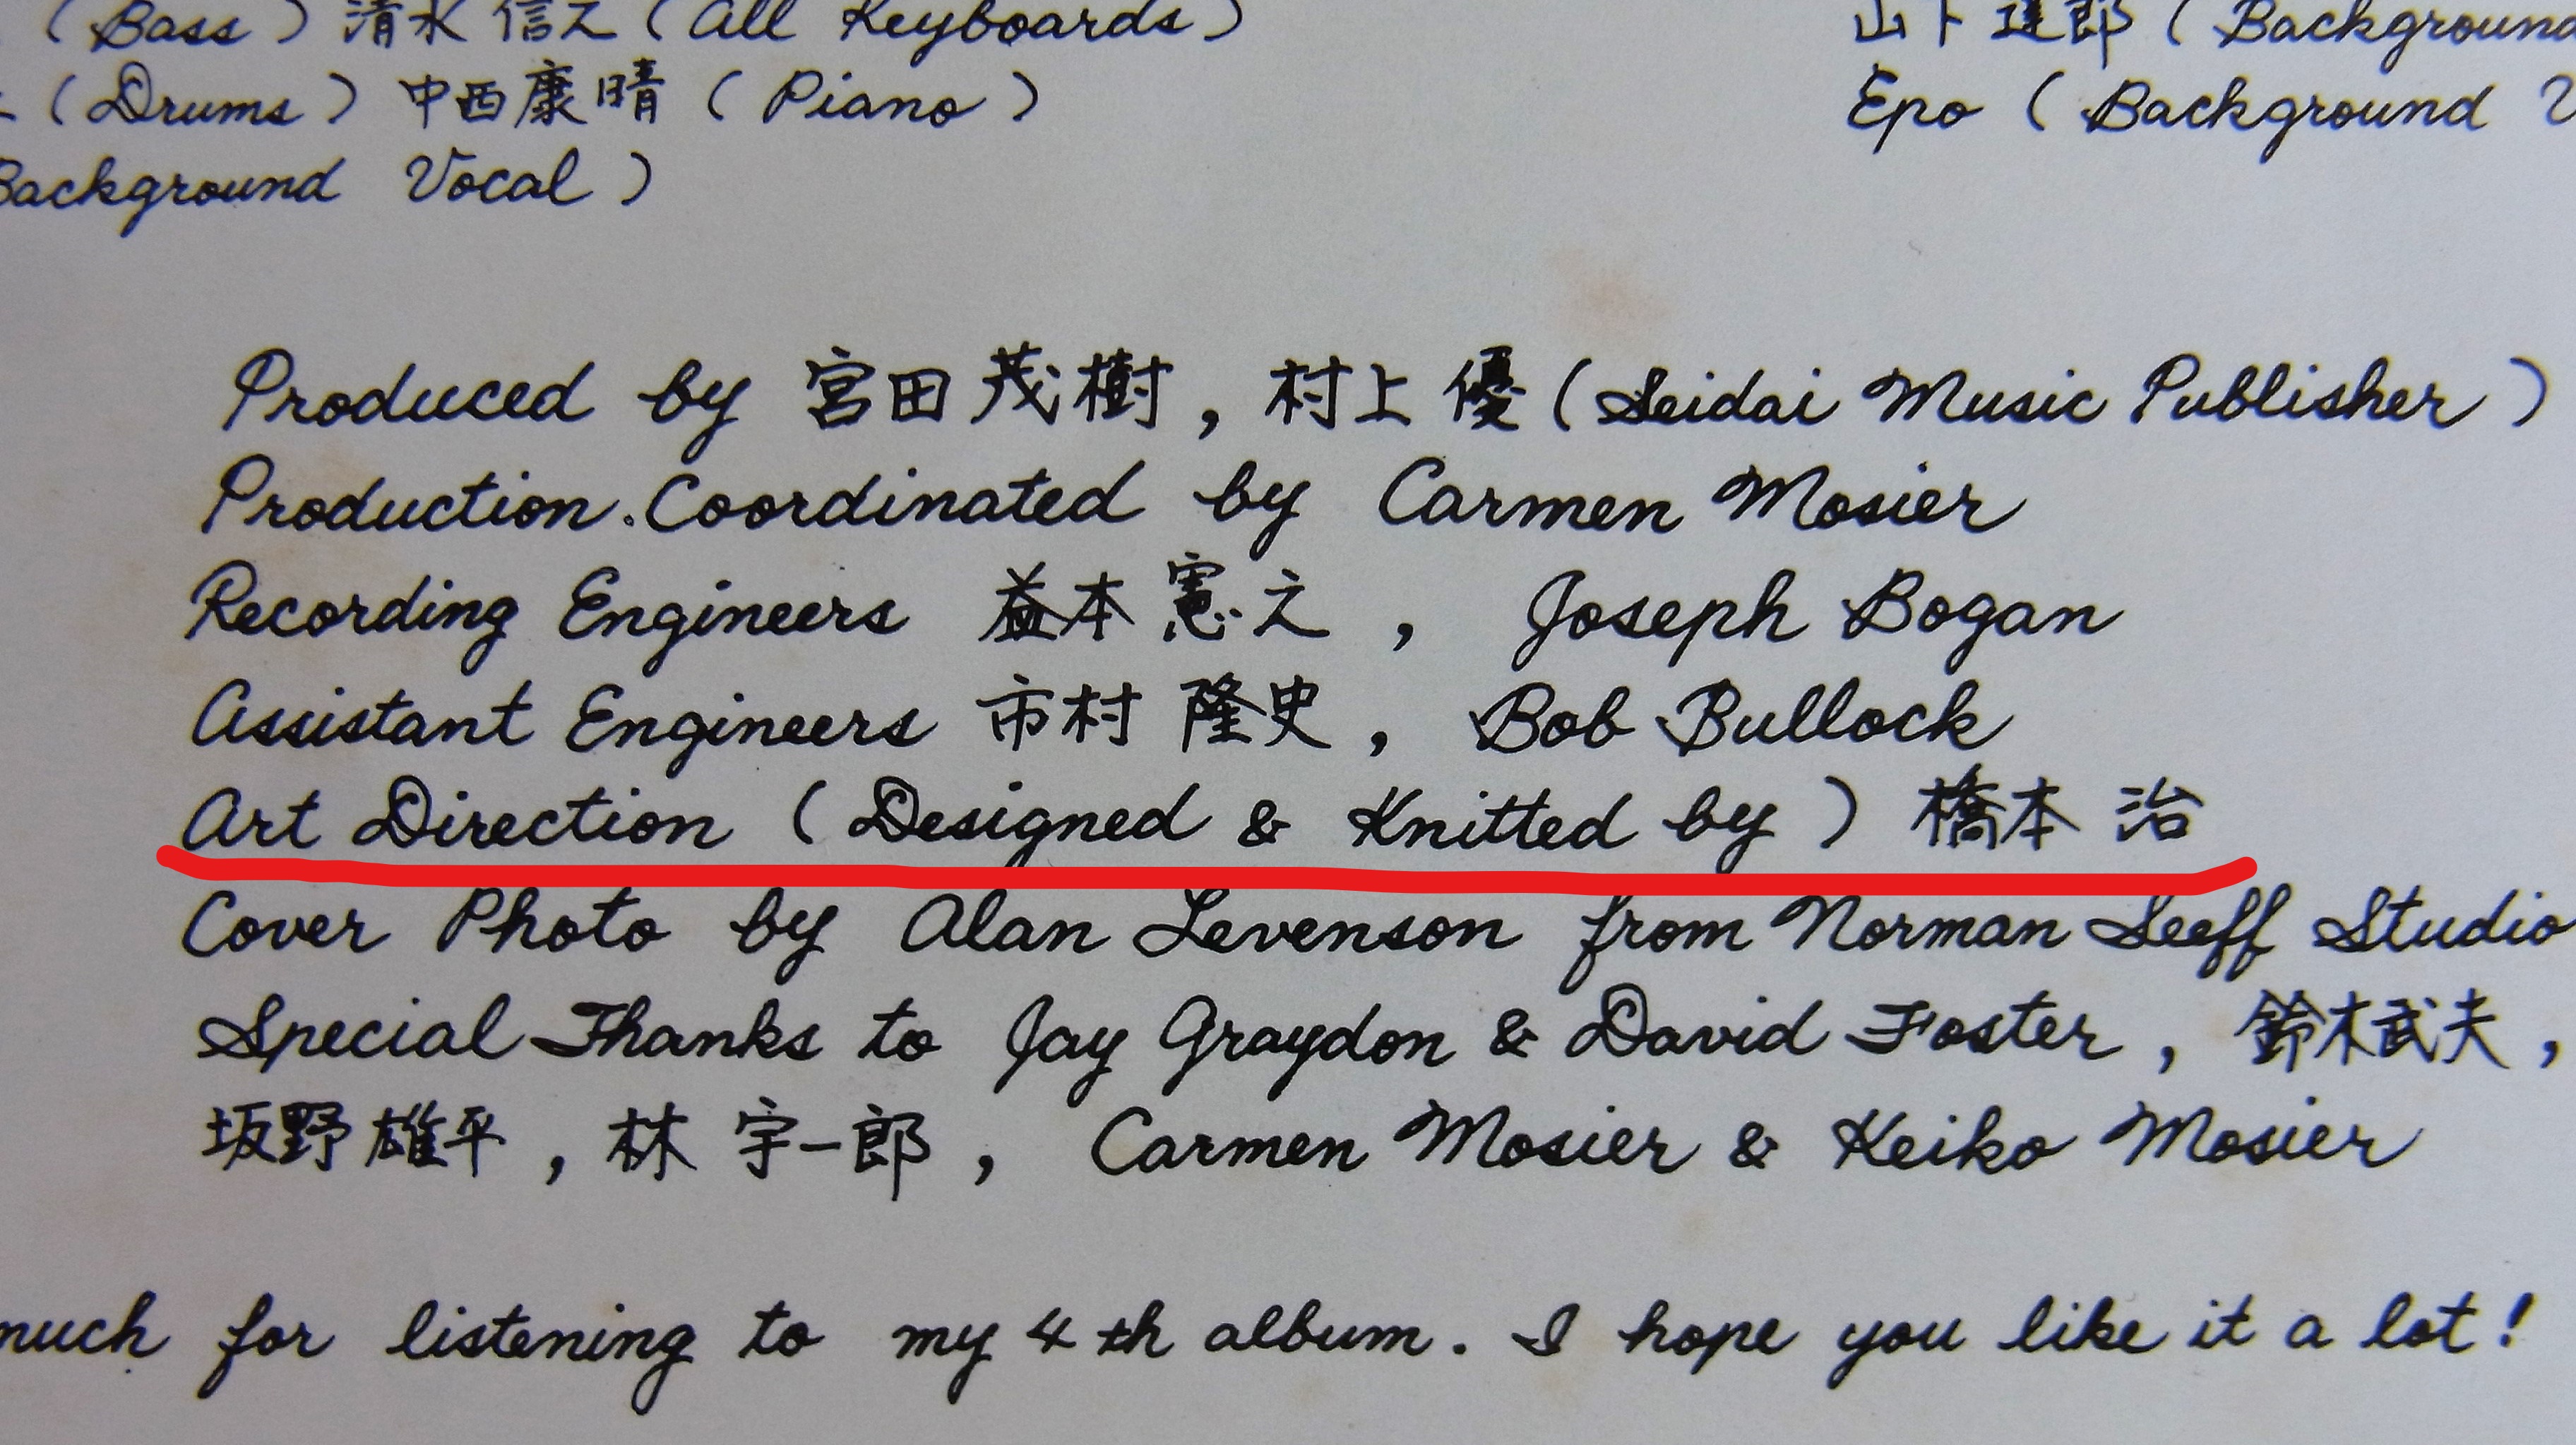 (Bass) 清水 信之 (All Keyboards)
(Drums) 中西康晴 (Piano)
Background Vocal)
山下達郎 (Background
Epo (Background V
Produced by 宮田茂樹, 村上 優 (Seidai Music Publisher)
Production.Coordinated by Carmen Mosier
Recording Engineers 益本憲之, Joseph Bogan
Assistant Engineers 市村 隆史, Bob Bullock
Art Direction (Designed & Knitted by) 橋本 治
Cover Photo by Alan Levenson from Norman Seeff Studio
Special Thanks to Jay Graydon & David Foster, 鈴木武夫,
坂野 雄平, 林 宇一郎, Carmen Mosier & Keiko Mosier
much for listening to my 4th album. I hope you like it a lot!